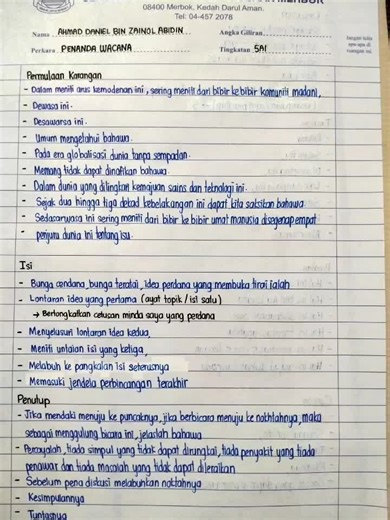 08400 Merbok, Kedah Darul Aman.
Tel: 04-457 2078
Nama AHMAD DANIEL BIN ZAINOL ABIDIN Angka Giliran
Perkara PENANDA WACANA Tingkatan 5A1
Permulaan Karangan
- Dalam meniti arus kemodenan ini, sering meniti dari bibir ke bibir komuniti madani,
- Dewasa ini.
- Desawarsa ini.
- Umum mengetahui bahawa.
- Pada era globalisasi dunia tanpa sempadan.
- Memang tidak dapat dinafikan bahawa.
- Dalam dunia yang dilingkari kemajuan sains dan teknologi ini.
- Sejak dua hingga tiga dekad kebelakangan ini dapat kita saksikan bahawa
- Sedasarwarsa ini sering meniti dari bibir ke bibir umat manusia disegenap empat
- penjuru dunia ini tentang isu.
Isi
- Bunga cendana, bunga teratai, idea perdana yang membuka tirai ialah
- Lontaran idea yang pertama (ayat topik / isi satu)
→ Bertongkatkan cetusan minda saya yang perdana
- Menyelusuri lontaran idea kedua,
- Meniti untaian isi yang ketiga,
- Melabuh ke pangkalan isi seterusnya
- Memasuki jendela perbincangan terakhir
Penutup
- Jika mendaki menuju ke puncaknya, jika berbicara menuju ke nokhtahnya, maka
sebagai menggulung bicara ini, jelaslah bahawa
- Percayalah, tiada simpul yang tidak dapat dirungkai, tiada penyakit yang tiada
penawar dan tiada masalah yang tidak dapat dileraikan
- Sebelum pena diskusi melabuhkan noktahnya
- Kesimpulannya
- Tuntasnya